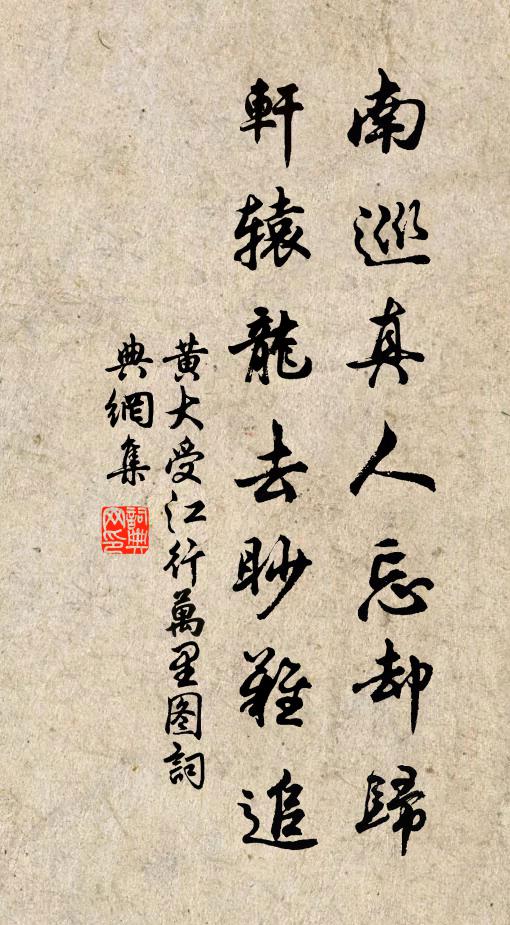 南巡真人忘却歸
軒辕龍去眇難追
黄大受江行萬里图詞
典網集
詞典网印